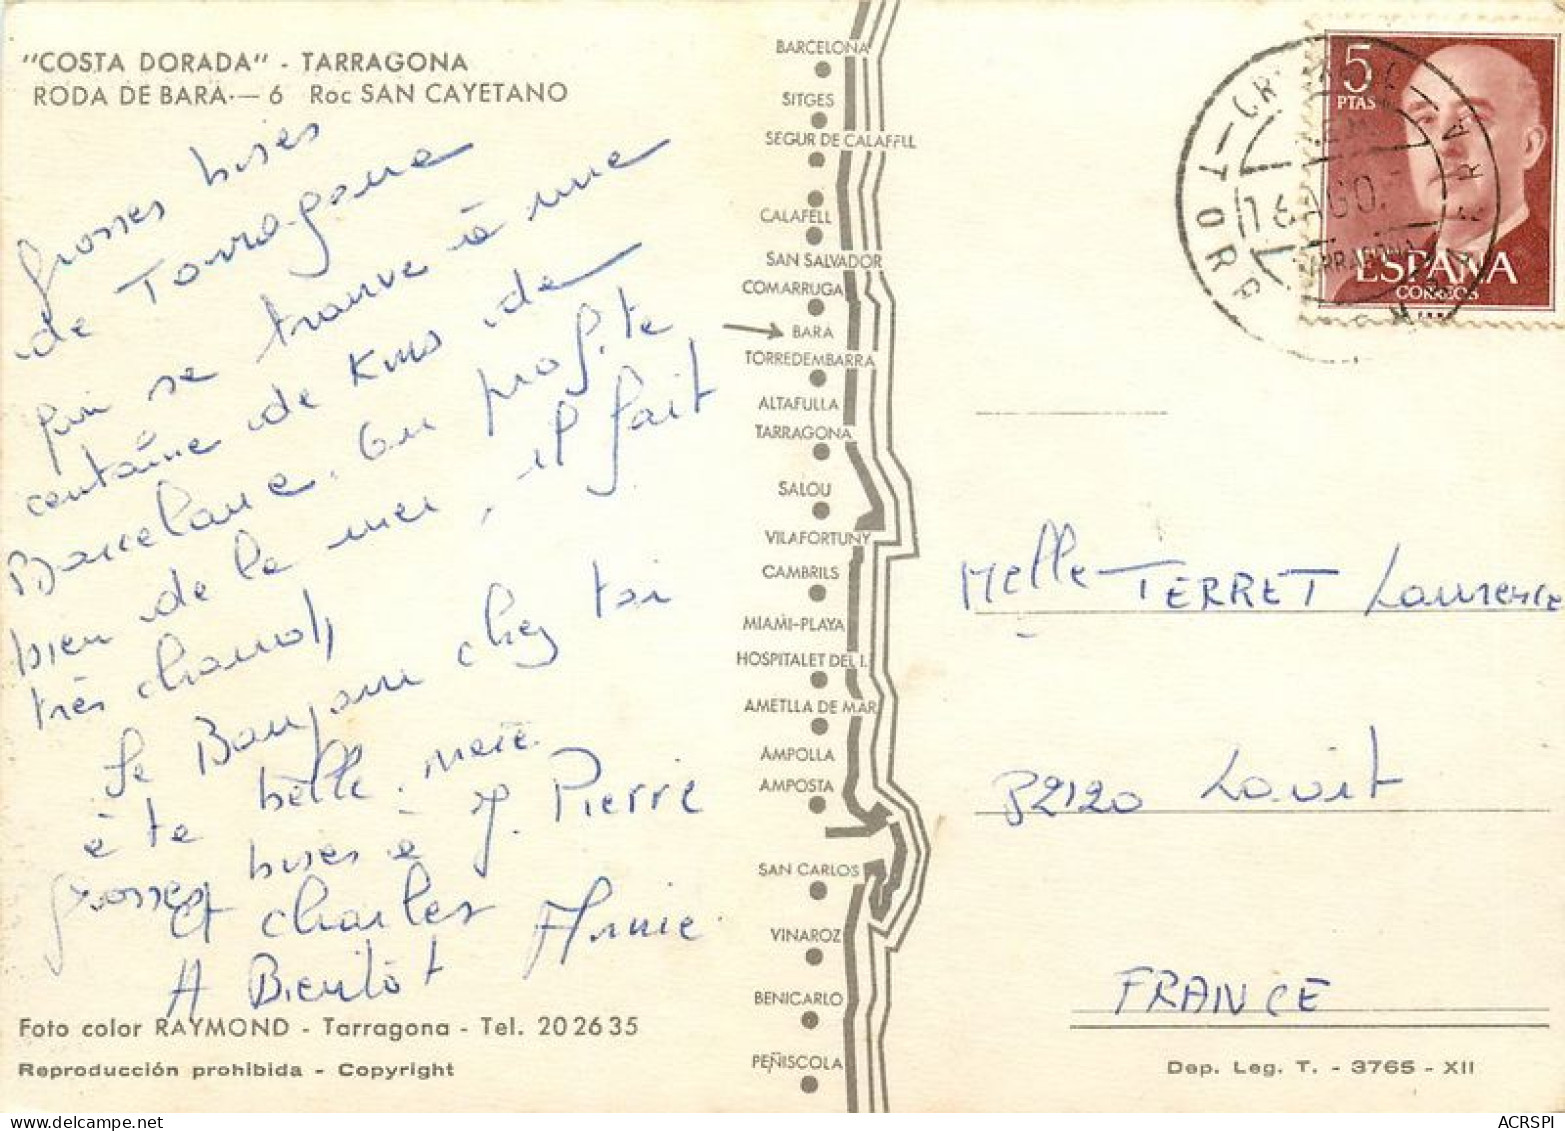 "COSTA DORADA" - TARRAGONA
RODA DE BARA.— 6 Roc SAN CAYETANO
grosses bises
de Tarragone
qui se trouve à une
centaine de Kms de
Barcelone. On profite
bien de la mer, il fait
très chaud
Le Bonjour chez toi
à te belle mere
grosses bises à J. Pierre
et Charles Annie
A Bientôt
Foto color RAYMOND - Tarragona - Tel. 20 26 35
Reproducción prohibida - Copyright
BARCELONA
SITGES
SEGUR DE CALAFELL
CALAFELL
SAN SALVADOR
COMARRUGA
BARÁ
TORREDEMBARRA
ALTAFULLA
TARRAGONA
SALOU
VILAFORTUNY
CAMBRILS
MIAMI-PLAYA
HOSPITALET DEL I.
AMETLLA DE MAR
AMPOLLA
AMPOSTA
SAN CARLOS
VINAROZ
BENICARLO
PEÑISCOLA
5
PTAS
ESPAÑA
CORREOS
16 AGO.
TARRAGONA
Melle TERRET Laurence
32120 Lavit
FRANCE
Dep. Leg. T. - 3765 - XII
ACRSPI